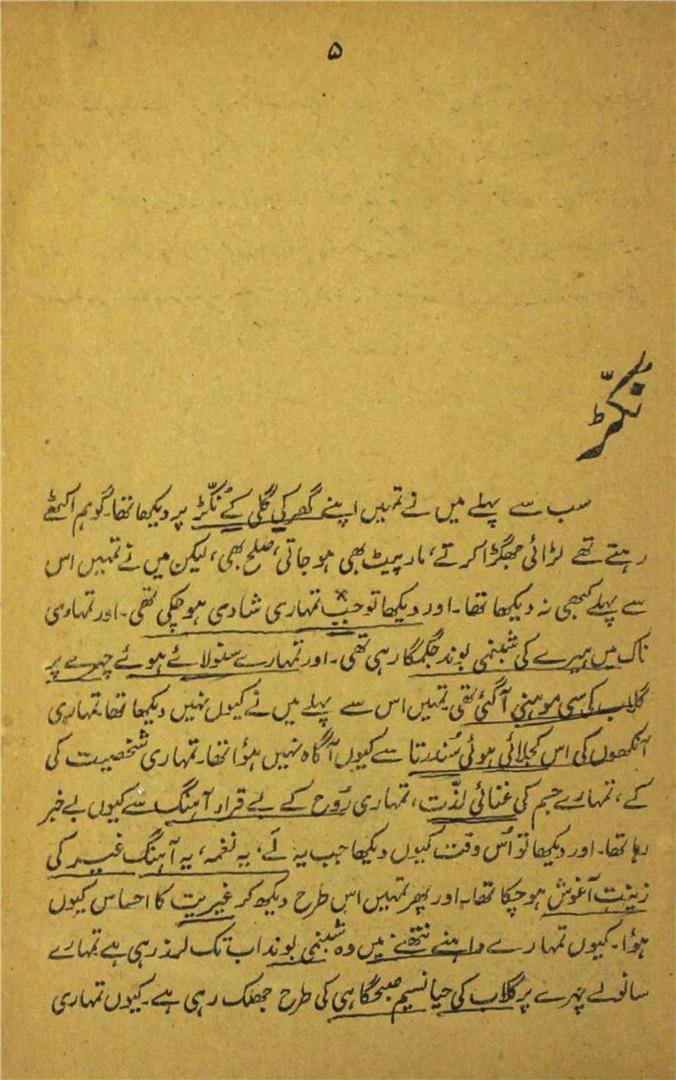 ۵
نکّڑ
سب سے پہلے میں نے تمہیں اپنے گھر کی گلی کے نُکّڑ پر دیکھا تھا۔ گو ہم اکٹھے
رہتے تھے لڑائی جھگڑا کرتے، مار پیٹ بھی ہو جاتی، صلح بھی، لیکن میں نے تمہیں اس
سے پہلے کبھی نہ دیکھا تھا۔ اور دیکھا تو جب تمہاری شادی ہو چکی تھی۔ اور تمہاری
ناک میں ہیرے کی شبنمی بوند جگمگا رہی تھی۔ اور تمہارے سنولائے ہوئے چہرے پر
گلاب کی سی موہنی آ گئی تھی تمہیں اس سے پہلے میں نے کیوں نہیں دیکھا تھا تمہاری
آنکھوں کی اس کجلائی ہوئی سُندرتا سے کیوں آگاہ نہیں ہؤا تھا۔ تمہاری شخصیت کی
لَے، تمہارے جسم کی غنائی لذّت، تمہاری رُوح کے بے قرار آہنگ سے کیوں بے خبر
رہا تھا۔ اور دیکھا تو اُس وقت کیوں دیکھا جب یہ لَے، یہ نغمہ، یہ آہنگ غیر کی
زینت آغوش ہو چکا تھا۔ اور پھر تمہیں اس طرح دیکھ کر غیریت کا احساس کیوں
ہؤا۔ کیوں تمہارے داہنے نتھنے میں وہ شبنمی بوند اب تک لرز رہی ہے تمہارے
سانولے چہرے پر گلاب کی حیا نسیم صبحگاہی کی طرح جھلک رہی ہے۔ کیوں تمہاری